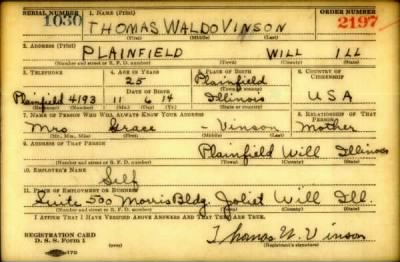 SERIAL NUMBER 1. NAME (Print) ORDER NUMBER
1030 THOMAS WALDO VINSON 2197
(First) (Middle) (Last)
2. ADDRESS (Print)
PLAINFIELD WILL ILL
(Number and street or R. F. D. number) (Town) (County) (State)
3. TELEPHONE 4. AGE IN YEARS 5. PLACE OF BIRTH 6. COUNTRY OF CITIZENSHIP
25 Plainfield
DATE OF BIRTH (Town or county)
Plainfield 4193 11 6 14 Illinois USA
(Exchange) (Number) (Mo.) (Day) (Yr.) (State or country)
7. NAME OF PERSON WHO WILL ALWAYS KNOW YOUR ADDRESS 8. RELATIONSHIP OF THAT PERSON
Mrs Grace - Vinson Mother
(Mr., Mrs., Miss) (First) (Middle) (Last)
9. ADDRESS OF THAT PERSON
Plainfield Will Illinois
(Number and street or R. F. D. number) (Town) (County) (State)
10. EMPLOYER'S NAME
Self
11. PLACE OF EMPLOYMENT OR BUSINESS
Suite 500 Morris Bldg. Joliet Will Ill.
(Number and street or R. F. D. number) (Town) (County) (State)
I AFFIRM THAT I HAVE VERIFIED ABOVE ANSWERS AND THAT THEY ARE TRUE.
REGISTRATION CARD
D. S. S. Form 1 Thomas W. Vinson
(Registrant's signature)